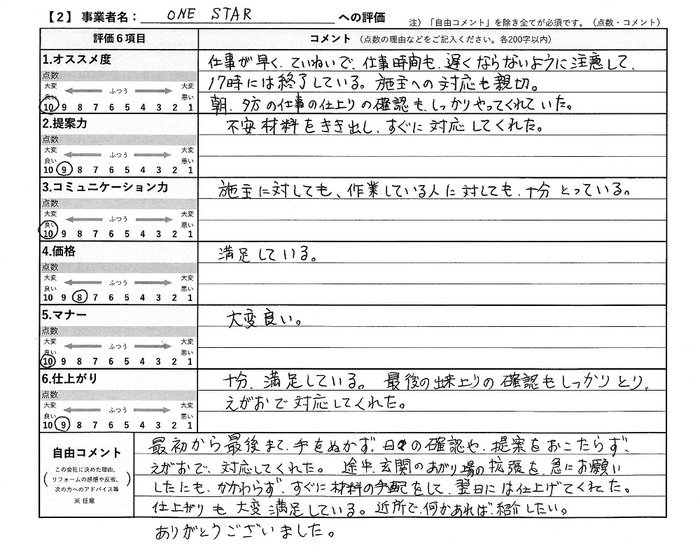 【2】事業者名： ONE STAR への評価
注）「自由コメント」を除き全てが必須です。（点数・コメント）
評価６項目 コメント（点数の理由などをご記入ください。各200字以内）
1.オススメ度
点数
大変良い ふつう 大変悪い
10 9 8 7 6 5 4 3 2 1
仕事が早く、ていねいで、仕事時間も、遅くならないように注意して、
17時には終了している。施主への対応も親切。
朝、夕方の仕事の仕上りの確認も、しっかりやってくれていた。
2.提案力
点数
大変良い ふつう 大変悪い
10 9 8 7 6 5 4 3 2 1
不安材料をきき出し、すぐに対応してくれた。
3.コミュニケーション力
点数
大変良い ふつう 大変悪い
10 9 8 7 6 5 4 3 2 1
施主に対しても、作業している人に対しても、十分とっている。
4.価格
点数
大変良い ふつう 大変悪い
10 9 8 7 6 5 4 3 2 1
満足している。
5.マナー
点数
大変良い ふつう 大変悪い
10 9 8 7 6 5 4 3 2 1
大変良い。
6.仕上がり
点数
大変良い ふつう 大変悪い
10 9 8 7 6 5 4 3 2 1
十分、満足している。最後の出来上りの確認もしっかりとり、
えがおで対応してくれた。
自由コメント
（この会社に決めた理由、
リフォームの感想や反省、
次の方へのアドバイス等）
※任意
最初から最後まで、手をぬかず、日々の確認や、提案をおこたらず、
えがおで、対応してくれた。途中、玄関のあがり場の拡張を、急にお願い
したにも、かかわらず、すぐに材料の手配をして、翌日には仕上げてくれた。
仕上がりも大変満足している。近所で、何かあれば、紹介したい。
ありがとうございました。